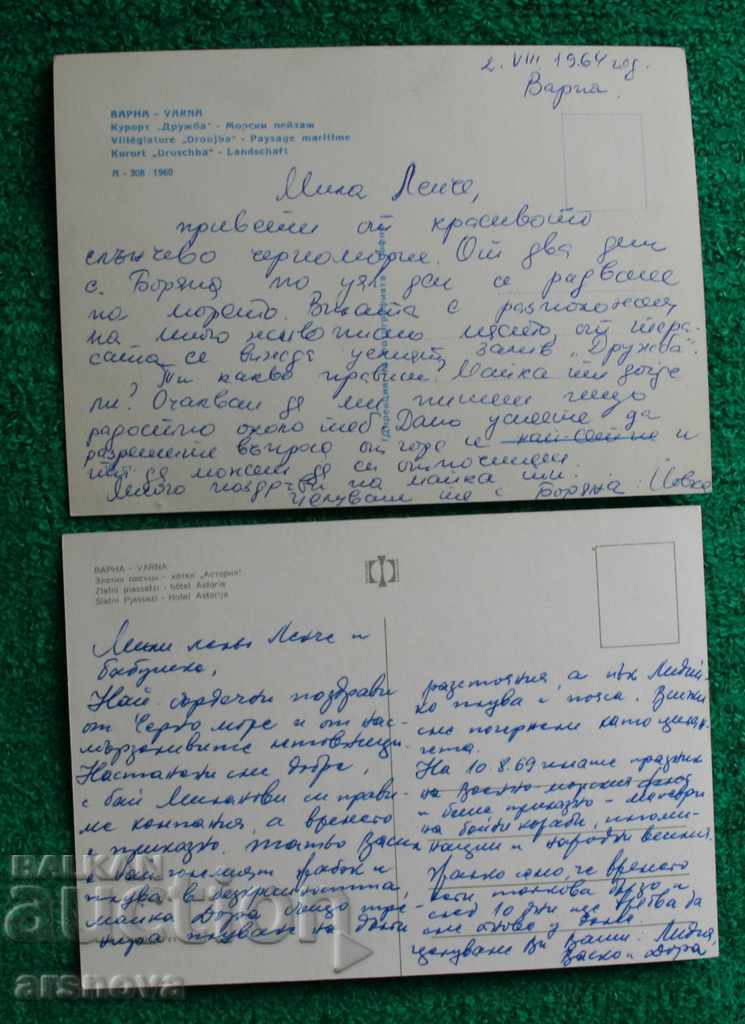 2. VIII. 1964 год.
Варна.
ВАРНА - VARNA
Курорт „Дружба" - Морски пейзаж
Villégiature „Droujba" - Paysage maritime
Kurort „Druschba" - Landschaft
Я - 308 / 1960
Мила Ленче,
привети от красивото
слънчево черноморие. От два дни
с Боряна по цял ден се радваме
на морето. Вилата е разположена
на много живописно място от тера-
сата се вижда целият залив „Дружба".
Ти какво правиш? Майка ти дойде
ли? Очаквам да ми пишеш нещо
радостно около теб. Дано успеете да
разрешите въпроса от года и
тя да можеш да си отпочинеш.
Много поздрави на майка ти.
Целуваме те с Боряна: Цовка
ВАРНА - VARNA
Златни пясъци - хотел „Астория"
Zlatni piassatzi - hôtel Astoria
Slatni Pjassazi - Hotel Astorija
Мили Ленче и
бабушка,
Най-сърдечни поздрави
от Черно море и от нас -
мързеливите летовници.
Настанени сме добре,
с бай Миланови си прави-
ме компания, а времето
е приказно. Татко Васко
е най-големият рабок и
плува в безкрайността,
майка Дора също
плуване на
разстояния, а пък Лидий-
ко плува с пояса. Всички
сме почернели като циган-
чета.
На 10.8.69 имаше празник
на Военно морския флот
и беше приказно - маневри
на бойни кораби, илюми-
нации и народни веселия.
Жалко само, че времето
лети толкова бързо и
след 10 дни ще трябва да
сме отново у дома.
Целуваме Ви Ваши: Лидия,
Васко и Дора
BALKAN
auction
arsnova